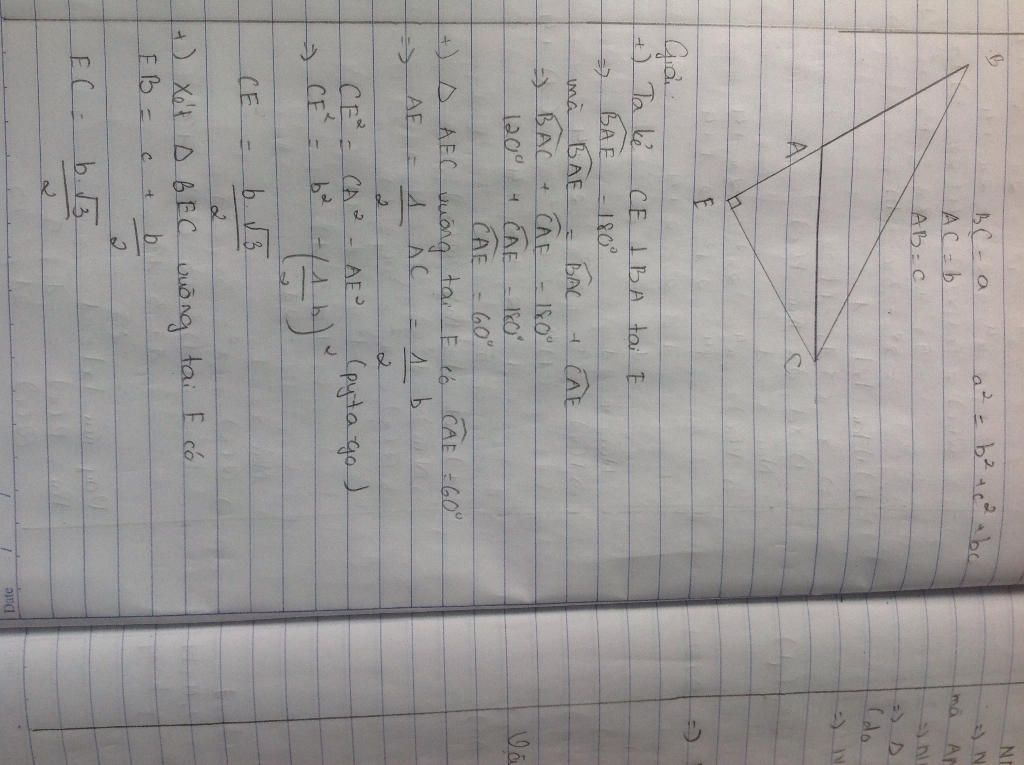 BC = a a² = b² + c² + bc
AC = b
AB = c
B
A
E
C
Giải:
+) Ta kẻ CE ⊥ BA tại E
⇒ BAE = 180°
mà BAE = BAC + CAE
⇒ BAC + CAE = 180°
120° + CAE = 180°
CAE = 60°
+) Δ AEC vuông tại E có CAE = 60°
⇒ AE = 1/2 AC = 1/2 b
CE² = CA² - AE² (pytago)
⇒ CE² = b² - (1/2 b)²
CE = b√3/2
+) Xét Δ BEC vuông tại E có
EB = c + b/2
EC = b√3/2
mà
⇒ Δ
(do
⇒
Vậ